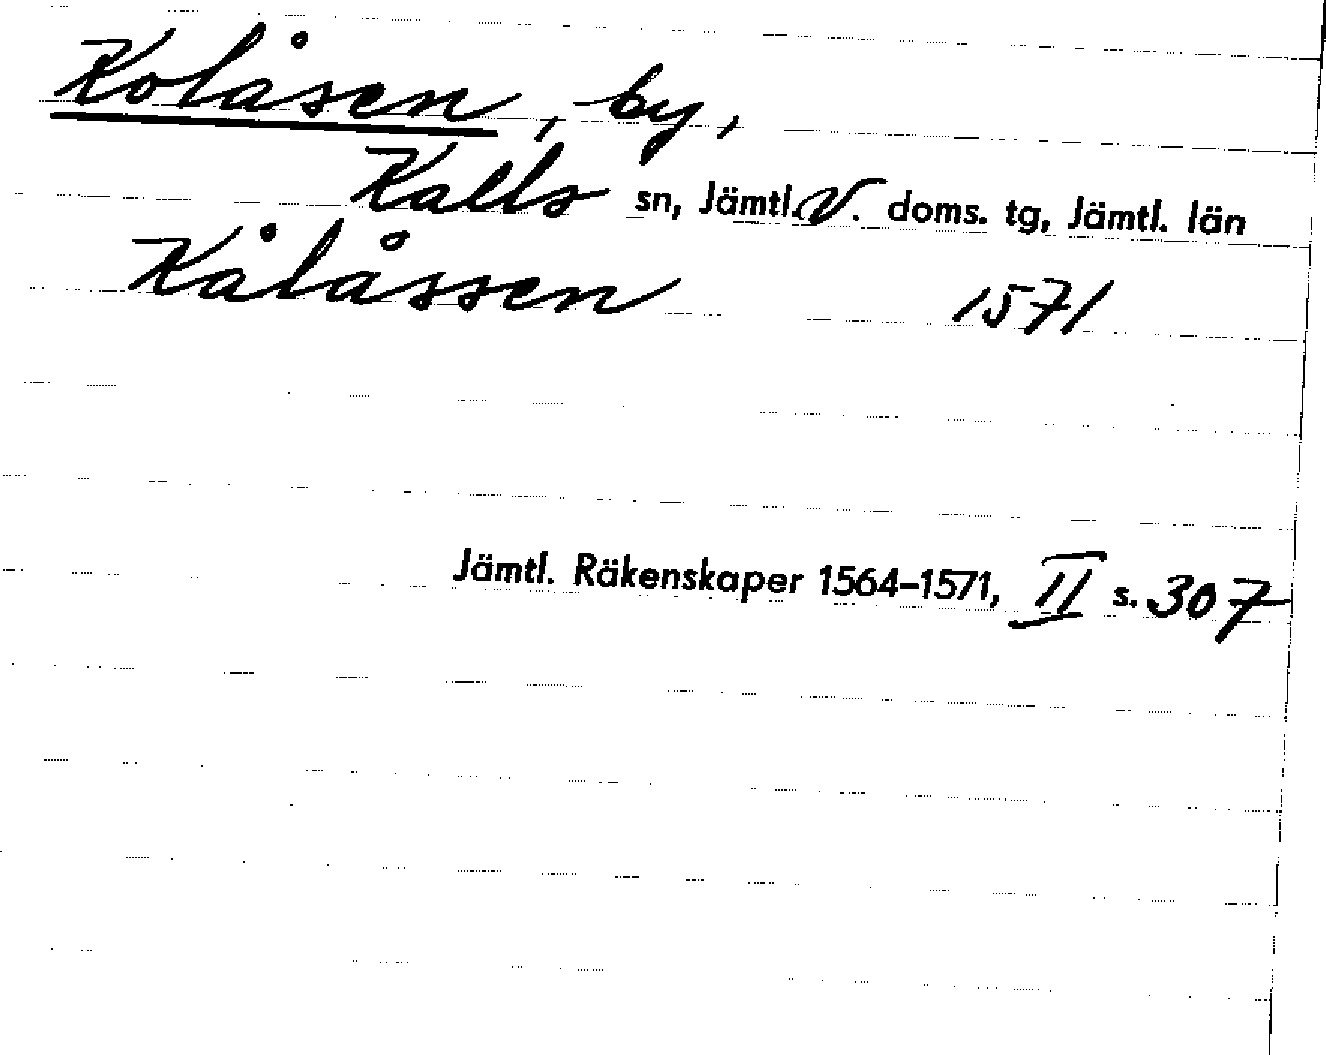 Kolåsen, by,
Kalls sn, Jämtl. V. doms. tg, Jämtl. län
Kålåssen 1571
Jämtl. Räkenskaper 1564-1571, II s. 307